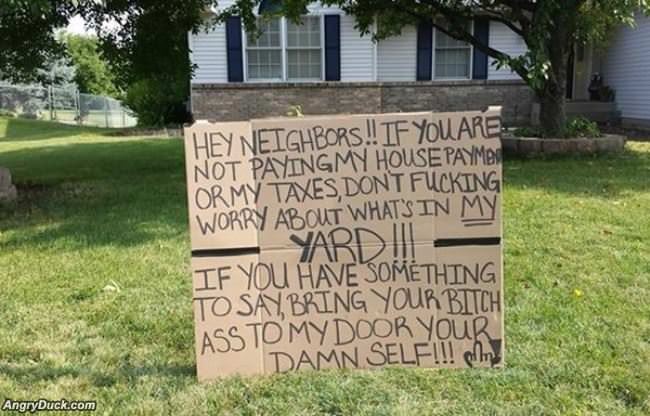 HEY NEIGHBORS!! IF YOU ARE
NOT PAYING MY HOUSE PAYMENT
OR MY TAXES, DON'T FUCKING
WORRY ABOUT WHAT'S IN MY
YARD!!!
IF YOU HAVE SOMETHING
TO SAY, BRING YOUR BITCH
ASS TO MY DOOR YOUR
DAMN SELF!!!
AngryDuck.com